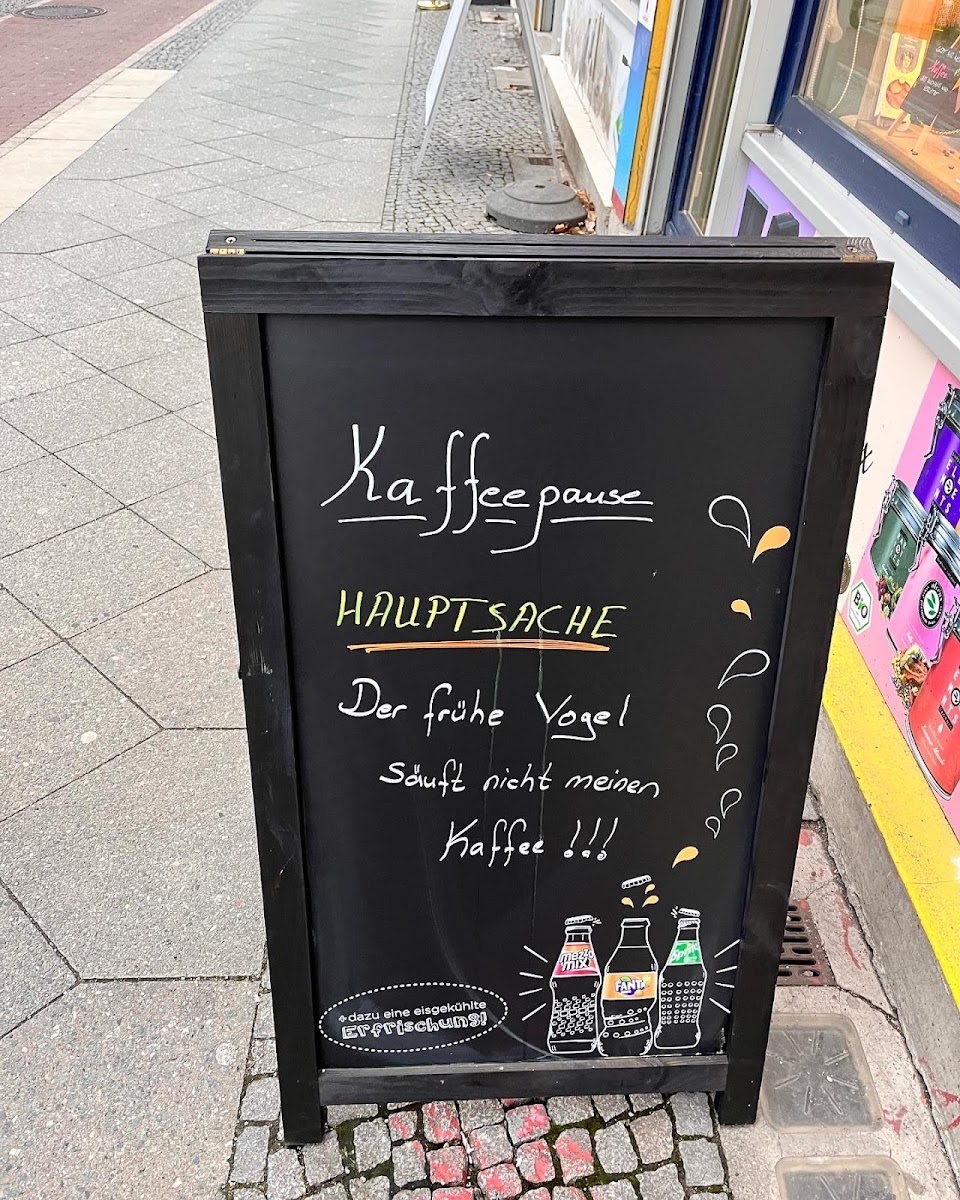 Kaffeepause
HAUPTSACHE
Der frühe Vogel
Säuft nicht meinen
Kaffee !!!
+ dazu eine eisgekühlte
Erfrischung!
mezzo
mix
FANTA
Sprite
BIO